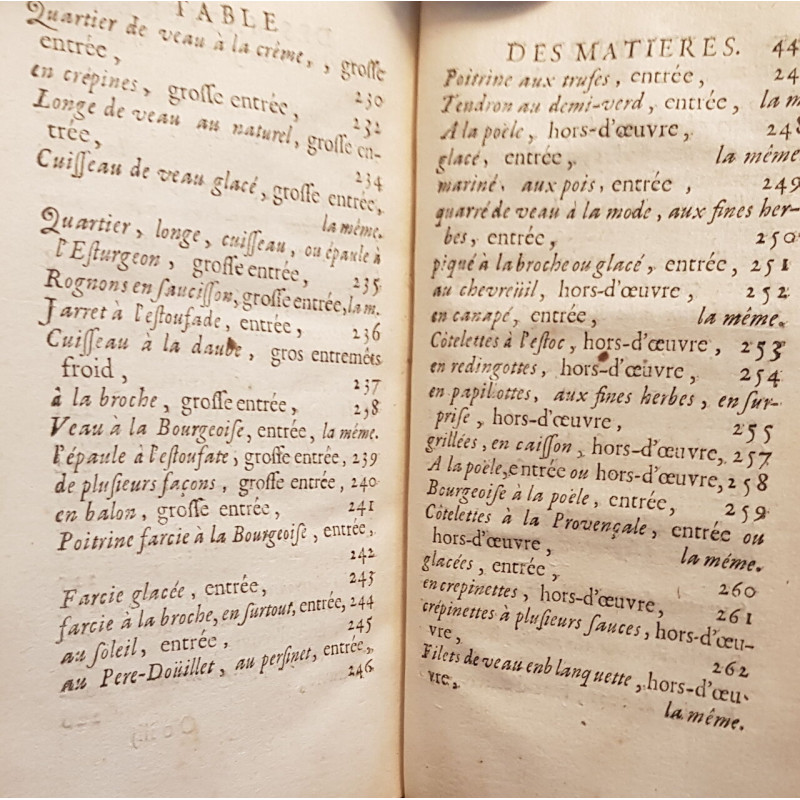 TABLE
Quartier de veau à la crème, , grosse
entrée, 230
en crépines, grosse entrée, 232
Longe de veau au naturel, grosse en-
trée, 234
Cuisseau de veau glacé, grosse entrée,
la même.
Quartier, longe, cuisseau, ou épaule à
l'Esturgeon, grosse entrée, 235
Rognons en saucisson, grosse entrée, la m.
Jarret à l'estoufade, entrée, 236
Cuisseau à la daube, gros entremêts
froid, 237
à la broche, grosse entrée, 238
Veau à la Bourgeoise, entrée, la même.
l'épaule à l'estoufate, grosse entrée, 239
de plusieurs façons, grosse entrée, 240
en balon, grosse entrée, 241
Poitrine farcie à la Bourgeoise, entrée,
242
Farcie glacée, entrée, 243
farcie à la broche, en surtout, entrée, 244
au soleil, entrée, 245
au Pere-Doüillet, au persinet, entrée,
246
DES MATIERES. 44
Poitrine aux trufes, entrée, 24
Tendron au demi-verd, entrée, la m
A la poèle, hors-d'œuvre, 248
glacé, entrée, la même
mariné, aux pois, entrée, 249
quarré de veau à la mode, aux fines her-
bes, entrée, 250
piqué à la broche ou glacé, entrée, 251
au chevreüil, hors-d'œuvre, 252
en canapé, entrée, la même.
Côtelettes à l'estoc, hors-d'œuvre, 253
en redingottes, hors-d'œuvre, 254
en papillottes, aux fines herbes, en sur-
prise, hors-d'œuvre, 255
grillées, en caisson, hors-d'œuvre, 257
A la poèle, entrée ou hors-d'œuvre, 258
Bourgeoise à la poèle, entrée, 259
Côtelettes à la Provençale, entrée ou
hors-d'œuvre, la même.
glacées, entrée, 260
en crepinettes, hors-d'œuvre, 261
crépinettes à plusieurs sauces, hors-d'œu-
vre, 262
Filets de veau enb lanquette, hors-d'œu-
vre, la même.